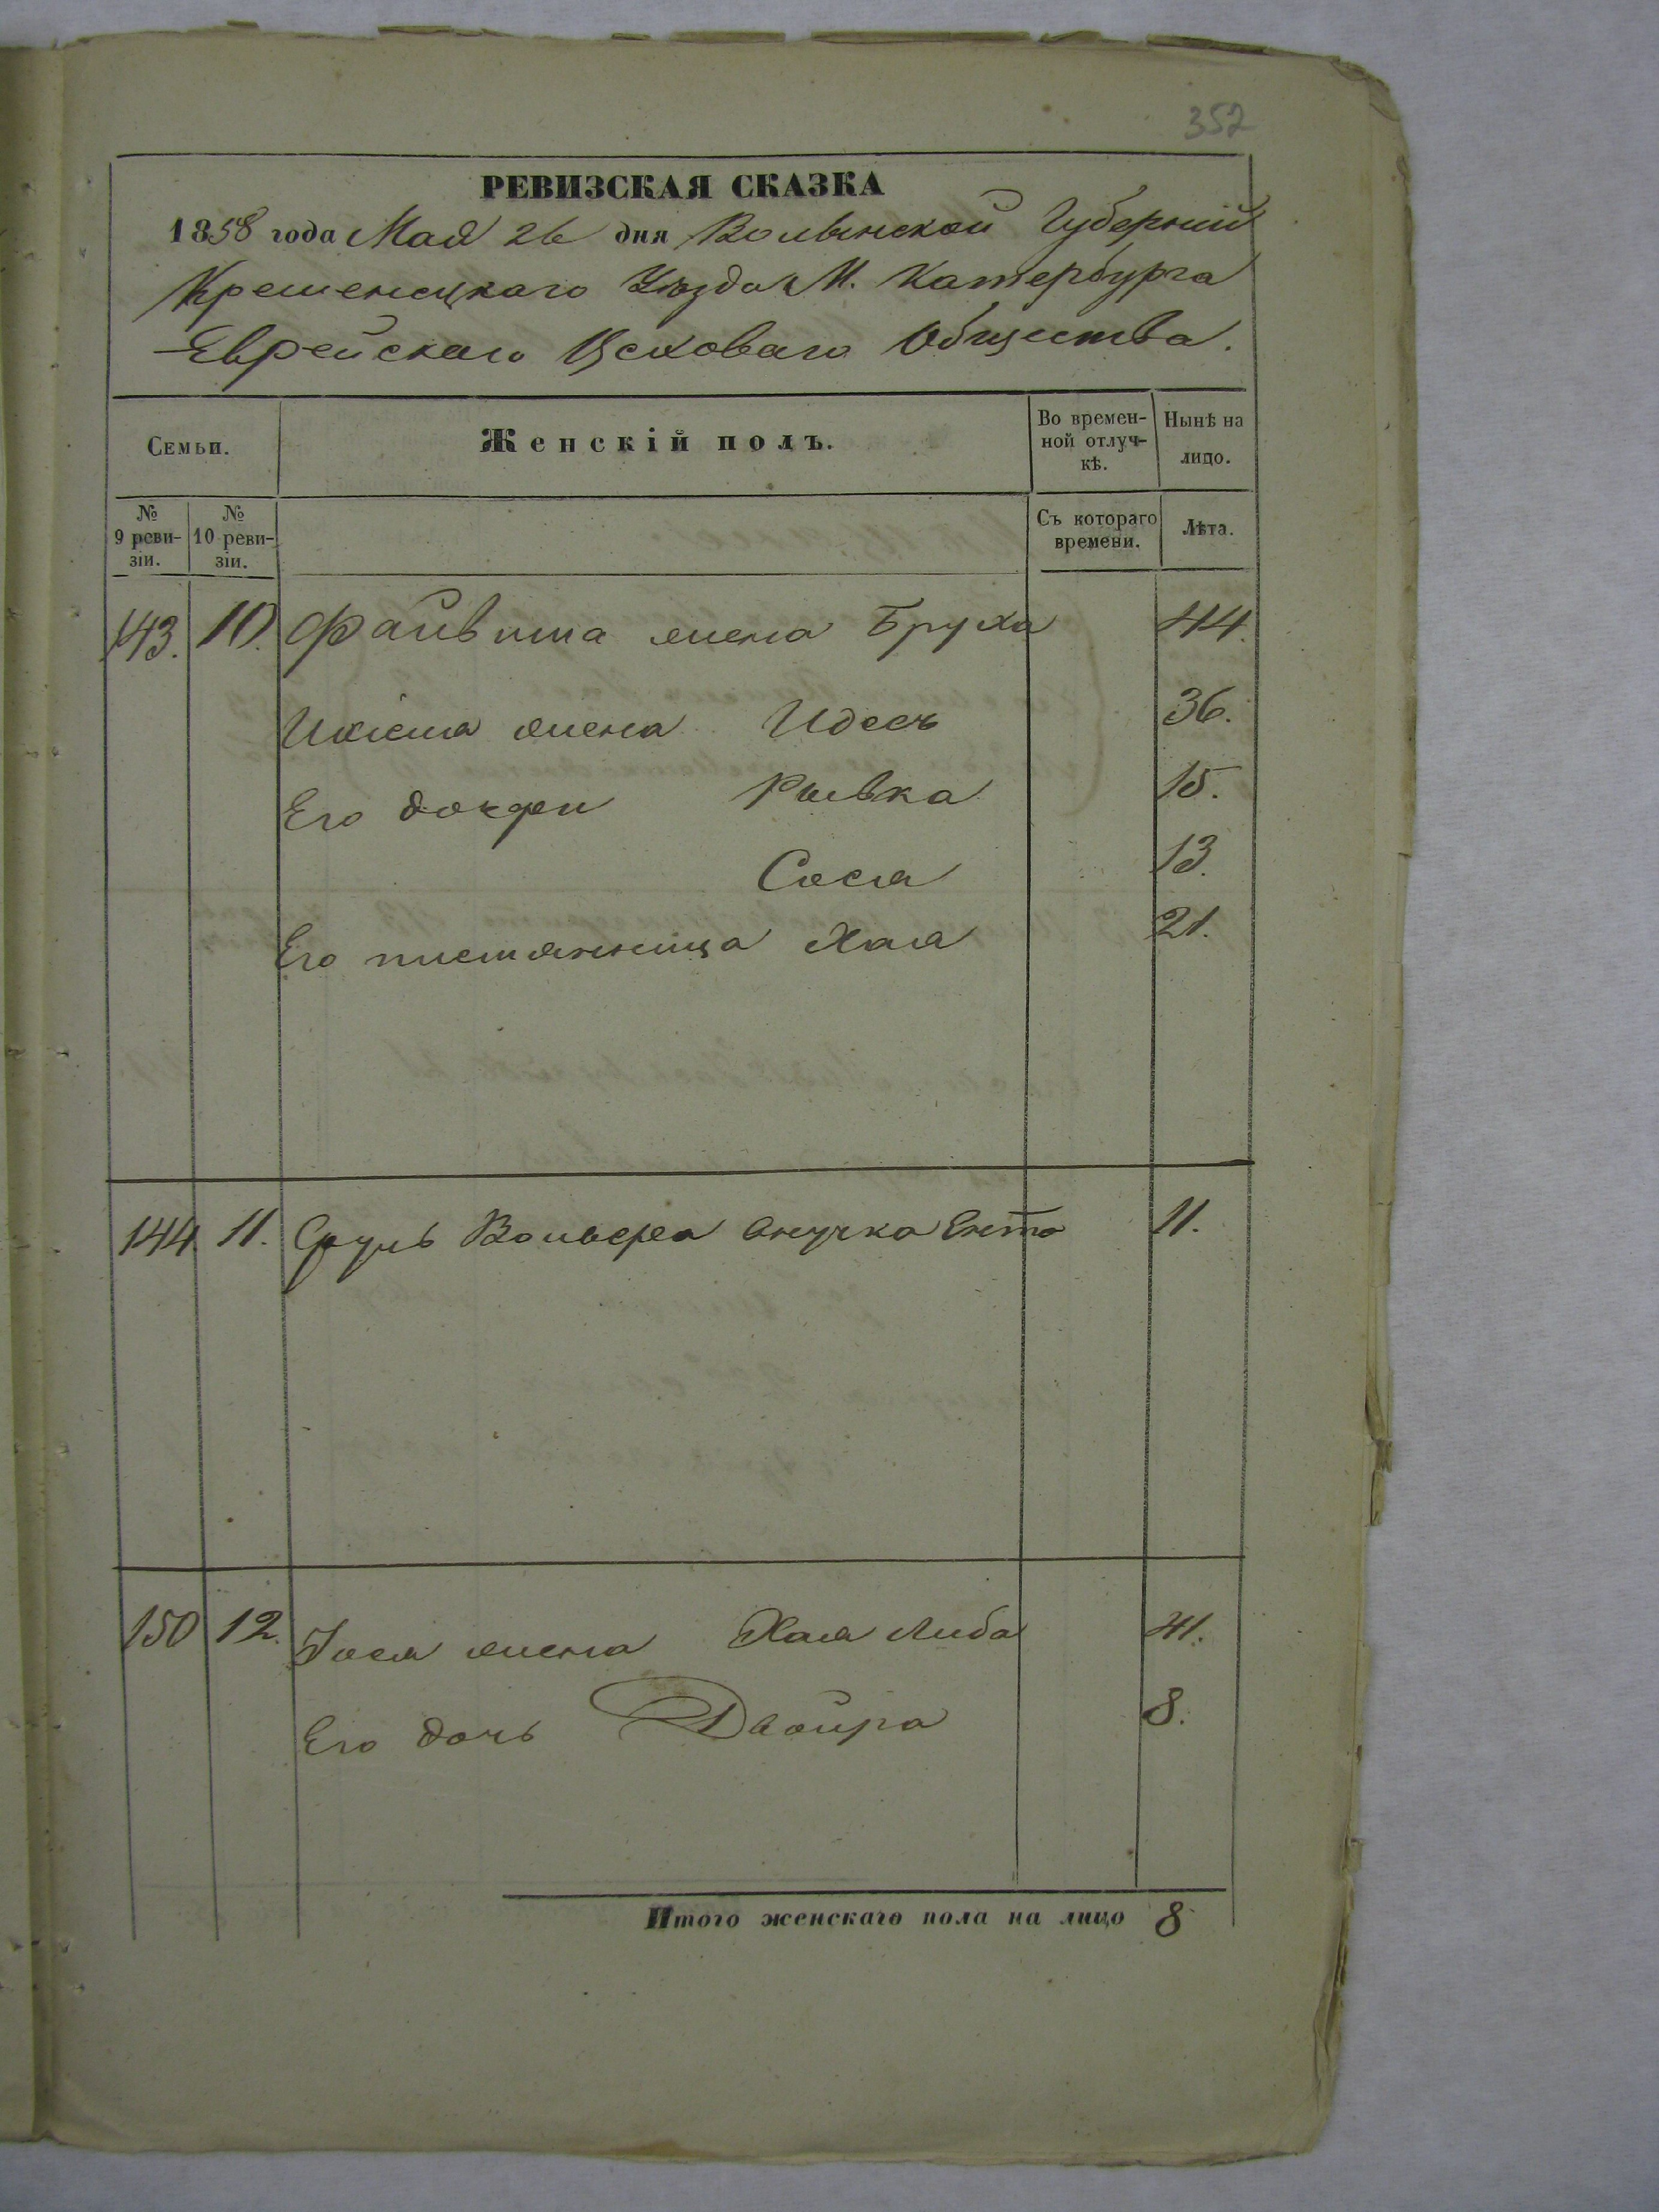 352
РЕВИЗСКАЯ СКАЗКА
1858 года Мая 26 дня Волынской Губерніи
Кременецкаго Уѣзда М. Катербурга
Еврейскаго Цеховаго Общества.
Семьи. Женскій полъ. Во времен- Нынѣ на
ной отлуч- лицо.
кѣ.
№ № Съ котораго Лѣта.
9 реви- 10 реви- времени.
зіи. зіи.
143. 10. Файвиша жена Бруха 44.
жена Идесъ 36.
Его дочери Рывка 15.
Сося 13.
Его племянница Хая 21.
144 11. Сруль Вольфа внучка Ента 11.
150 12. Іося жена Хая Либа 41.
Его дочь Двойра 8.
Итого женскаго пола на лицо 8